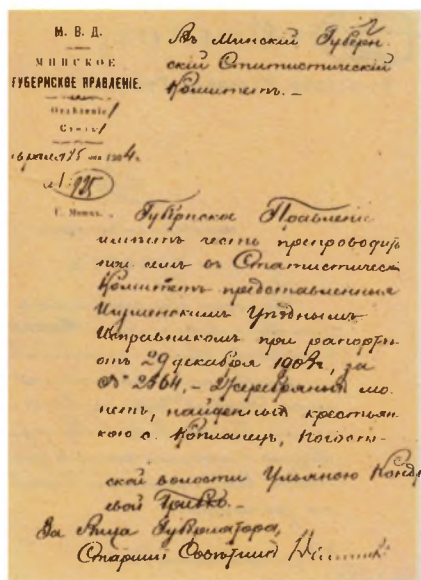 М. В. Д.
МИНСКОЕ
ГУБЕРНСКОЕ ПРАВЛЕНІЕ.
Отдѣленіе 1
Столъ 1
15 1904 г.
№ 925
Г. Минскъ.
2
Въ Минскій Губерн-
скій Статистическій
Комитетъ. –
Губернское Правленіе
имѣетъ честь препроводить
при семъ въ Статистическій
Комитетъ представленныя
Игуменскимъ Уѣзднымъ
Исправникомъ при рапортѣ
отъ 29 декабря 1903 г., за
№ 2664, – серебряныя мо-
нетъ, найденныя крестьян-
кою с. Погост-
ской волости Ульяною Конд
евой
За Вице Губернатора,
Старшій Совѣтникъ